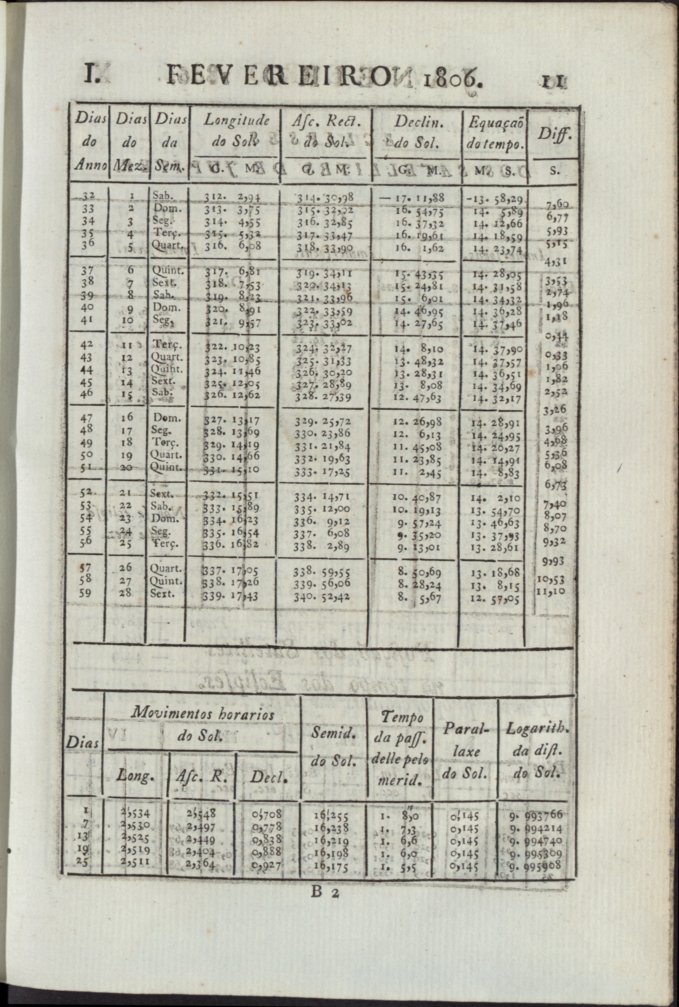 I. FEVEREIRO 1806. 11
Dias do Anno | Dias do Mez. | Dias da Sem. | Longitude do Sol. | Asc. Rect. do Sol. | Declin. do Sol. | Equaçaõ do tempo. | Diff.
G. M. | G. M. | G. M. | M. S. | S.
32 1 Sab. 312. 2,94 314. 30,98 — 17. 11,88 —13. 58,29
7,60
33 2 Dom. 313. 3,75 315. 32,02 16. 54,75 14. 5,89
6,77
34 3 Seg. 314. 4,55 316. 32,85 16. 37,32 14. 12,66
5,93
35 4 Terç. 315. 5,32 317. 33,47 16. 19,61 14. 18,59
5,15
36 5 Quart. 316. 6,08 318. 33,90 16. 1,62 14. 23,74
4,31
37 6 Quint. 317. 6,81 319. 34,11 15. 43,35 14. 28,05
3,53
38 7 Sext. 318. 7,53 320. 34,13 15. 24,81 14. 31,58
2,74
39 8 Sab. 319. 8,23 321. 33,96 15. 6,01 14. 34,32
1,96
40 9 Dom. 320. 8,91 322. 33,59 14. 46,95 14. 36,28
1,18
41 10 Seg. 321. 9,57 323. 33,02 14. 27,65 14. 37,46
0,44
42 11 Terç. 322. 10,23 324. 32,27 14. 8,10 14. 37,90
0,33
43 12 Quart. 323. 10,85 325. 31,33 13. 48,32 14. 37,57
1,06
44 13 Quint. 324. 11,46 326. 30,20 13. 28,31 14. 36,51
1,82
45 14 Sext. 325. 12,05 327. 28,89 13. 8,08 14. 34,69
2,52
46 15 Sab. 326. 12,62 328. 27,39 12. 47,63 14. 32,17
3,26
47 16 Dom. 327. 13,17 329. 25,72 12. 26,98 14. 28,91
3,96
48 17 Seg. 328. 13,69 330. 23,86 12. 6,13 14. 24,95
4,68
49 18 Terç. 329. 14,19 331. 21,84 11. 45,08 14. 20,27
5,36
50 19 Quart. 330. 14,66 332. 19,63 11. 23,85 14. 14,91
6,08
51 20 Quint. 331. 15,10 333. 17,25 11. 2,45 14. 8,83
6,73
52 21 Sext. 332. 15,51 334. 14,71 10. 40,87 14. 2,10
7,40
53 22 Sab. 333. 15,89 335. 12,00 10. 19,13 13. 54,70
8,07
54 23 Dom. 334. 16,23 336. 9,12 9. 57,24 13. 46,63
8,70
55 24 Seg. 335. 16,54 337. 6,08 9. 35,20 13. 37,93
9,32
56 25 Terç. 336. 16,82 338. 2,89 9. 13,01 13. 28,61
9,93
57 26 Quart. 337. 17,05 338. 59,55 8. 50,69 13. 18,68
10,53
58 27 Quint. 338. 17,26 339. 56,06 8. 28,24 13. 8,15
11,10
59 28 Sext. 339. 17,43 340. 52,42 8. 5,67 12. 57,05
Dias | Movimentos horarios do Sol. | Semid. do Sol. | Tempo da pass. delle pelo merid. | Parallaxe do Sol. | Logarith. da dist. do Sol.
Long. | Asc. R. | Decl.
1 2,534 2,548 0,708 16,255 1. 8,0 0,145 9. 993766
7 2,530 2,497 0,778 16,238 1. 7,3 0,145 9. 994214
13 2,525 2,449 0,838 16,219 1. 6,6 0,145 9. 994740
19 2,519 2,404 0,888 16,198 1. 6,0 0,145 9. 995309
25 2,511 2,364 0,927 16,175 1. 5,5 0,145 9. 995968
B 2